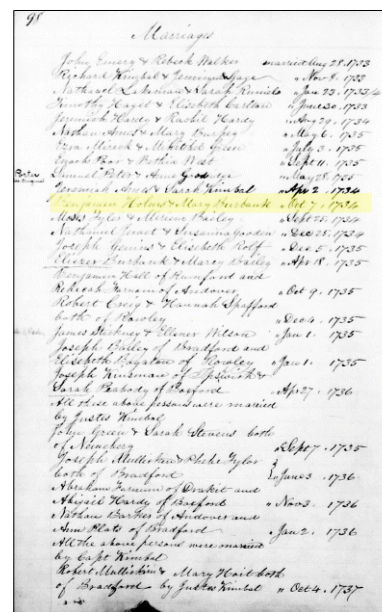 98
Marriages
John Emery & Rebeck Walker married Aug 28. 1733
Richard Kimbal & Jemimy Gage " Nov 8. 1733
Nathaniel Lakeman & Sarah " Jan 23. 1733/4
Timothy Hazel & Elisebeth Carlton " June 20. 1733
Jeremiah Hardy & Rashil Hardy " Aug 29. 1734
Nathan Ames & Mary " May 6. 1735
Ezra & Mehitbel Green " July 3. 1735
Enoch & Bethia West " Sept 11. 1735
Samuel Peter & Anne " May 28. 1735
Jeremiah Ames & Sarah Kimbal " Apr 2. 1734
Benjamin Holms & Mary Burbank " Oct 7. 1734
Moses Tyler & Miriam Bailey " Sept 25. 1734
Nathaniel & Susanna " Dec 25. 1734
Joseph & Elisebeth Rolf " Dec 5. 1735
Eliezer Burbank & Marcy Bailey " Apr 18. 1735
Benjamin Hall of and
Rebecah of Andover " Oct 9. 1735
Robert Creig & Hannah Spafford
both of Rowley " Dec 4. 1735
James Stickney & Elener Wilson " Jan 1. 1735
Joseph Bailey of Bradford and
Elisebeth of Rowley " Jan 1. 1735
Joseph Kinsman of Ipswich &
Sarah Peabody of Boxford " Apr 27. 1736
All these above persons were married
by Justes Kimbal
John Green & Sarah Stevens both
of " Sept 7. 1735
Joseph Mullerkin & Phebe Tylor
both of Bradford " June 3. 1736
Abraham of and
Abigail Hardy of Boxford " Nov 3. 1736
Nathan of Andover and
Ann Plats of Bradford " Jan 2. 1736
All the above persons were married
by Capt Kimbal
Robert & Mary Hait both
of Bradford by Justes Kimbal " Oct 4. 1737